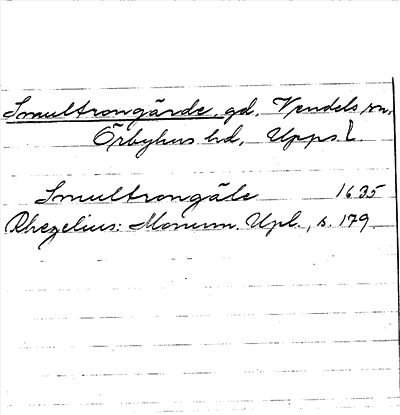 Smultrongärde, gd, Vendels sn,
Örbyhus hd, Upps. l.
Smultrongäle 1635
Rhezelius: Monum. Upl., s. 179.